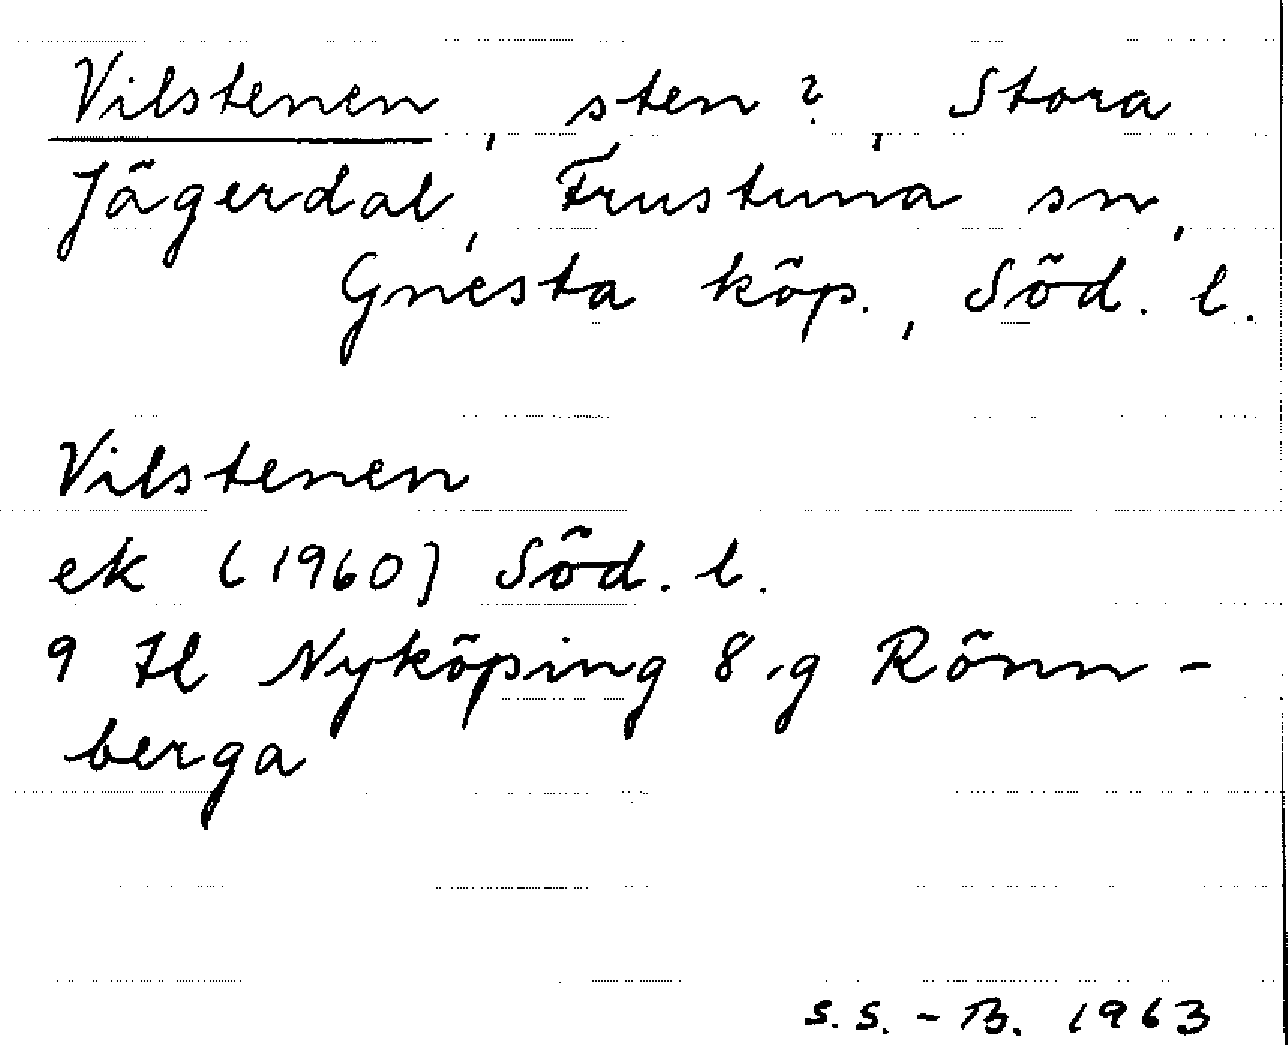 Vilstenen, sten?, Stora
Jägerdal, Frustuna sn,
Gnesta köp., Söd. l.
Vilstenen
ek (1960) Söd. l.
9 H Nyköping 8 g Rönn-
berga
S.S.-B. 1963